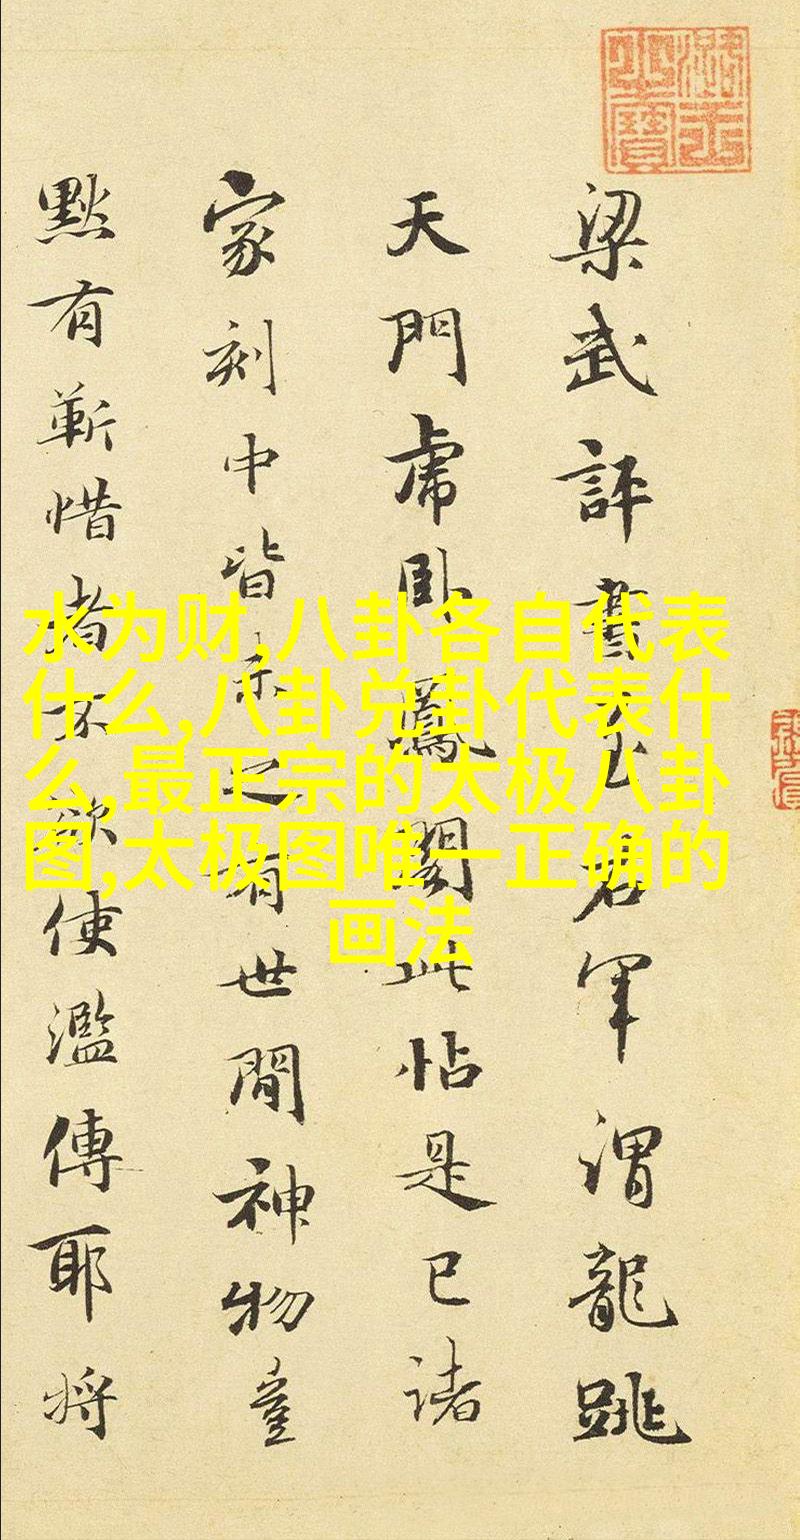 梁武評書至右軍謂龍跳
天門虎卧鳳閣此帖是已諸
家刻中皆未之有世間神物豈
黙有靳惜者不欲使濫傳耶將
水为财,八卦各自代表
什么,八卦兑卦代表什
么,最正宗的太极八卦
图,太极图唯一正确的
画法